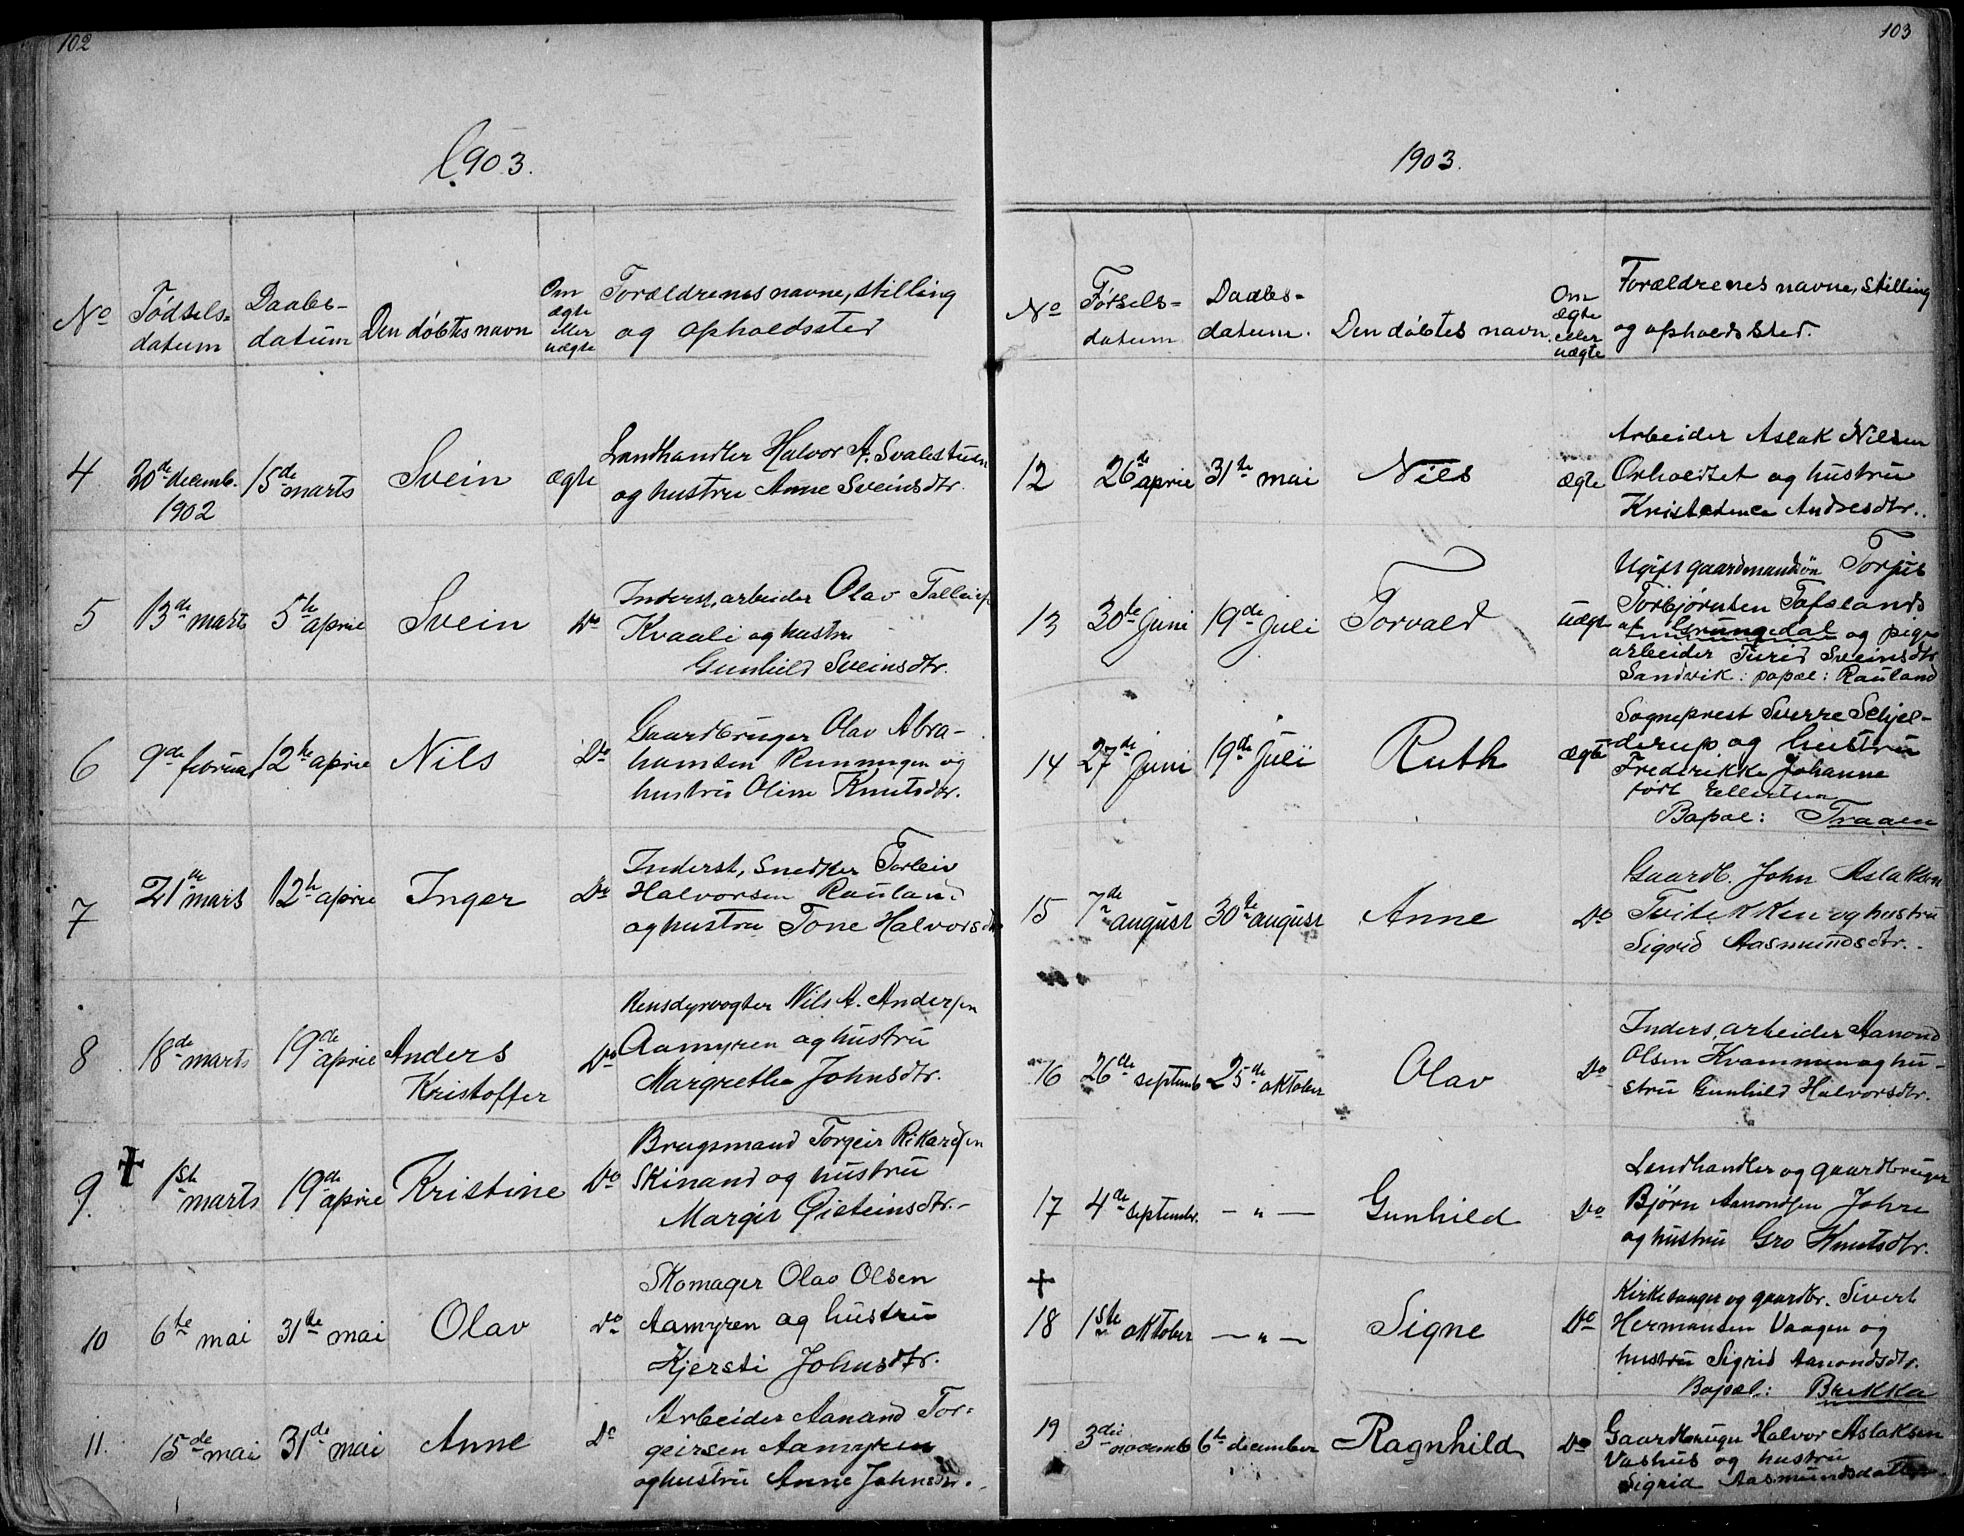 102
1903.
No
Fødsels-
datum
Daabs-
datum
Den døbtes navn
Om
ægte
eller
uægte
Forældrenes navne, stilling
og opholdssted
4
20de decemb.
1902
15de marts
Svein
ægte
Landhandler Halvor A. Svalestuen
og hustru Anne Sveinsdtr.
5
13de marts
5te april
Svein
Do
Inderst, arbeider Olav
Kvaali og hustru
Gunhild Sveinsdtr.
6
9de februar
12te april
Nils
Do
Gaardbruger Olav Abra-
hamsen og
hustru Oline Knutsdtr.
7
21de marts
12te april
Inger
Do
Inderst, Snedker Torleiv
Halvorsen Rauland
og hustru Tone Halvorsdtr
8
18de marts
19de april
Anders
Kristoffer
Do
Rensdyrvogter Nils A. Andersen
Aamyren og hustru
Margrethe Johnsdtr.
9
1ste marts
19de april
Kristine
Do
Brugsmand Torgeir Rikardsen
Skinand og hustru
Margit Øisteinsdtr.
10
6te mai
31te mai
Olav
Do
Skomager Olav Olsen
Aamyren og hustru
Kjersti Johnsdtr.
11.
15de mai
31de mai
Anne
Do
Arbeider Aanand Tor-
geirsen Aamyren
og hustru Anne Johnsdtr.
103
1903.
No
Fødsels-
datum
Daabs-
datum.
Den døbtes navn.
Om
ægte
eller
uægte
Forældrenes navne, stilling
og opholdssted.
12
26de april
31te mai
Nils
ægte
Arbeider Aslak Nilsen
Orholdtet og hustru
Andresdtr.
13
30te Juni
19de Juli
Torvald
uægte
Ugift gaardmandsøn Torjus
Torbjørnsen Tofslands
af Grungedal og pige
arbeider Turid Sveinsdtr
Sandvik: Rauland
14
27de Juni
19de Juli
Ruth
ægte
Sogneprest Sverre Schjel-
derup og hustru
Frederikke Johanne
født Ellertsen
Bopæl: Traaen
15
7de august
30te august
Anne
Do
Gaardb. John Aslaksen
Tveitekken og hustru
Sigrid Aasmundsdtr.
16
26de septemb
25de oktober
Olav
Do
Inders, arbeider Aanond
Olsen Kvammen og hu-
stru Gunhild Halvorsdtr.
17
4de septembr.
— „ —
Gunhild
Do
Landhandler og gaardbruger
Bjørn Aanondsen Johre
og hustru Gro Knutsdtr.
18
1ste oktober
— „ —
Signe
Do
Kirkesanger og gaardbr. Sivert
Hermansen Vaagen og
hustru Sigrid Aanondsdtr.
Bopæl: Brekka
19
3die novemb
6te december
Ragnhild
Do
Gaardbruger Halvor Aslaksen
Vashus og hustru
Sigrid Aasmundsdatter.